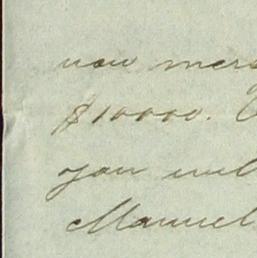 now mers
$10000.
you will
Manuel